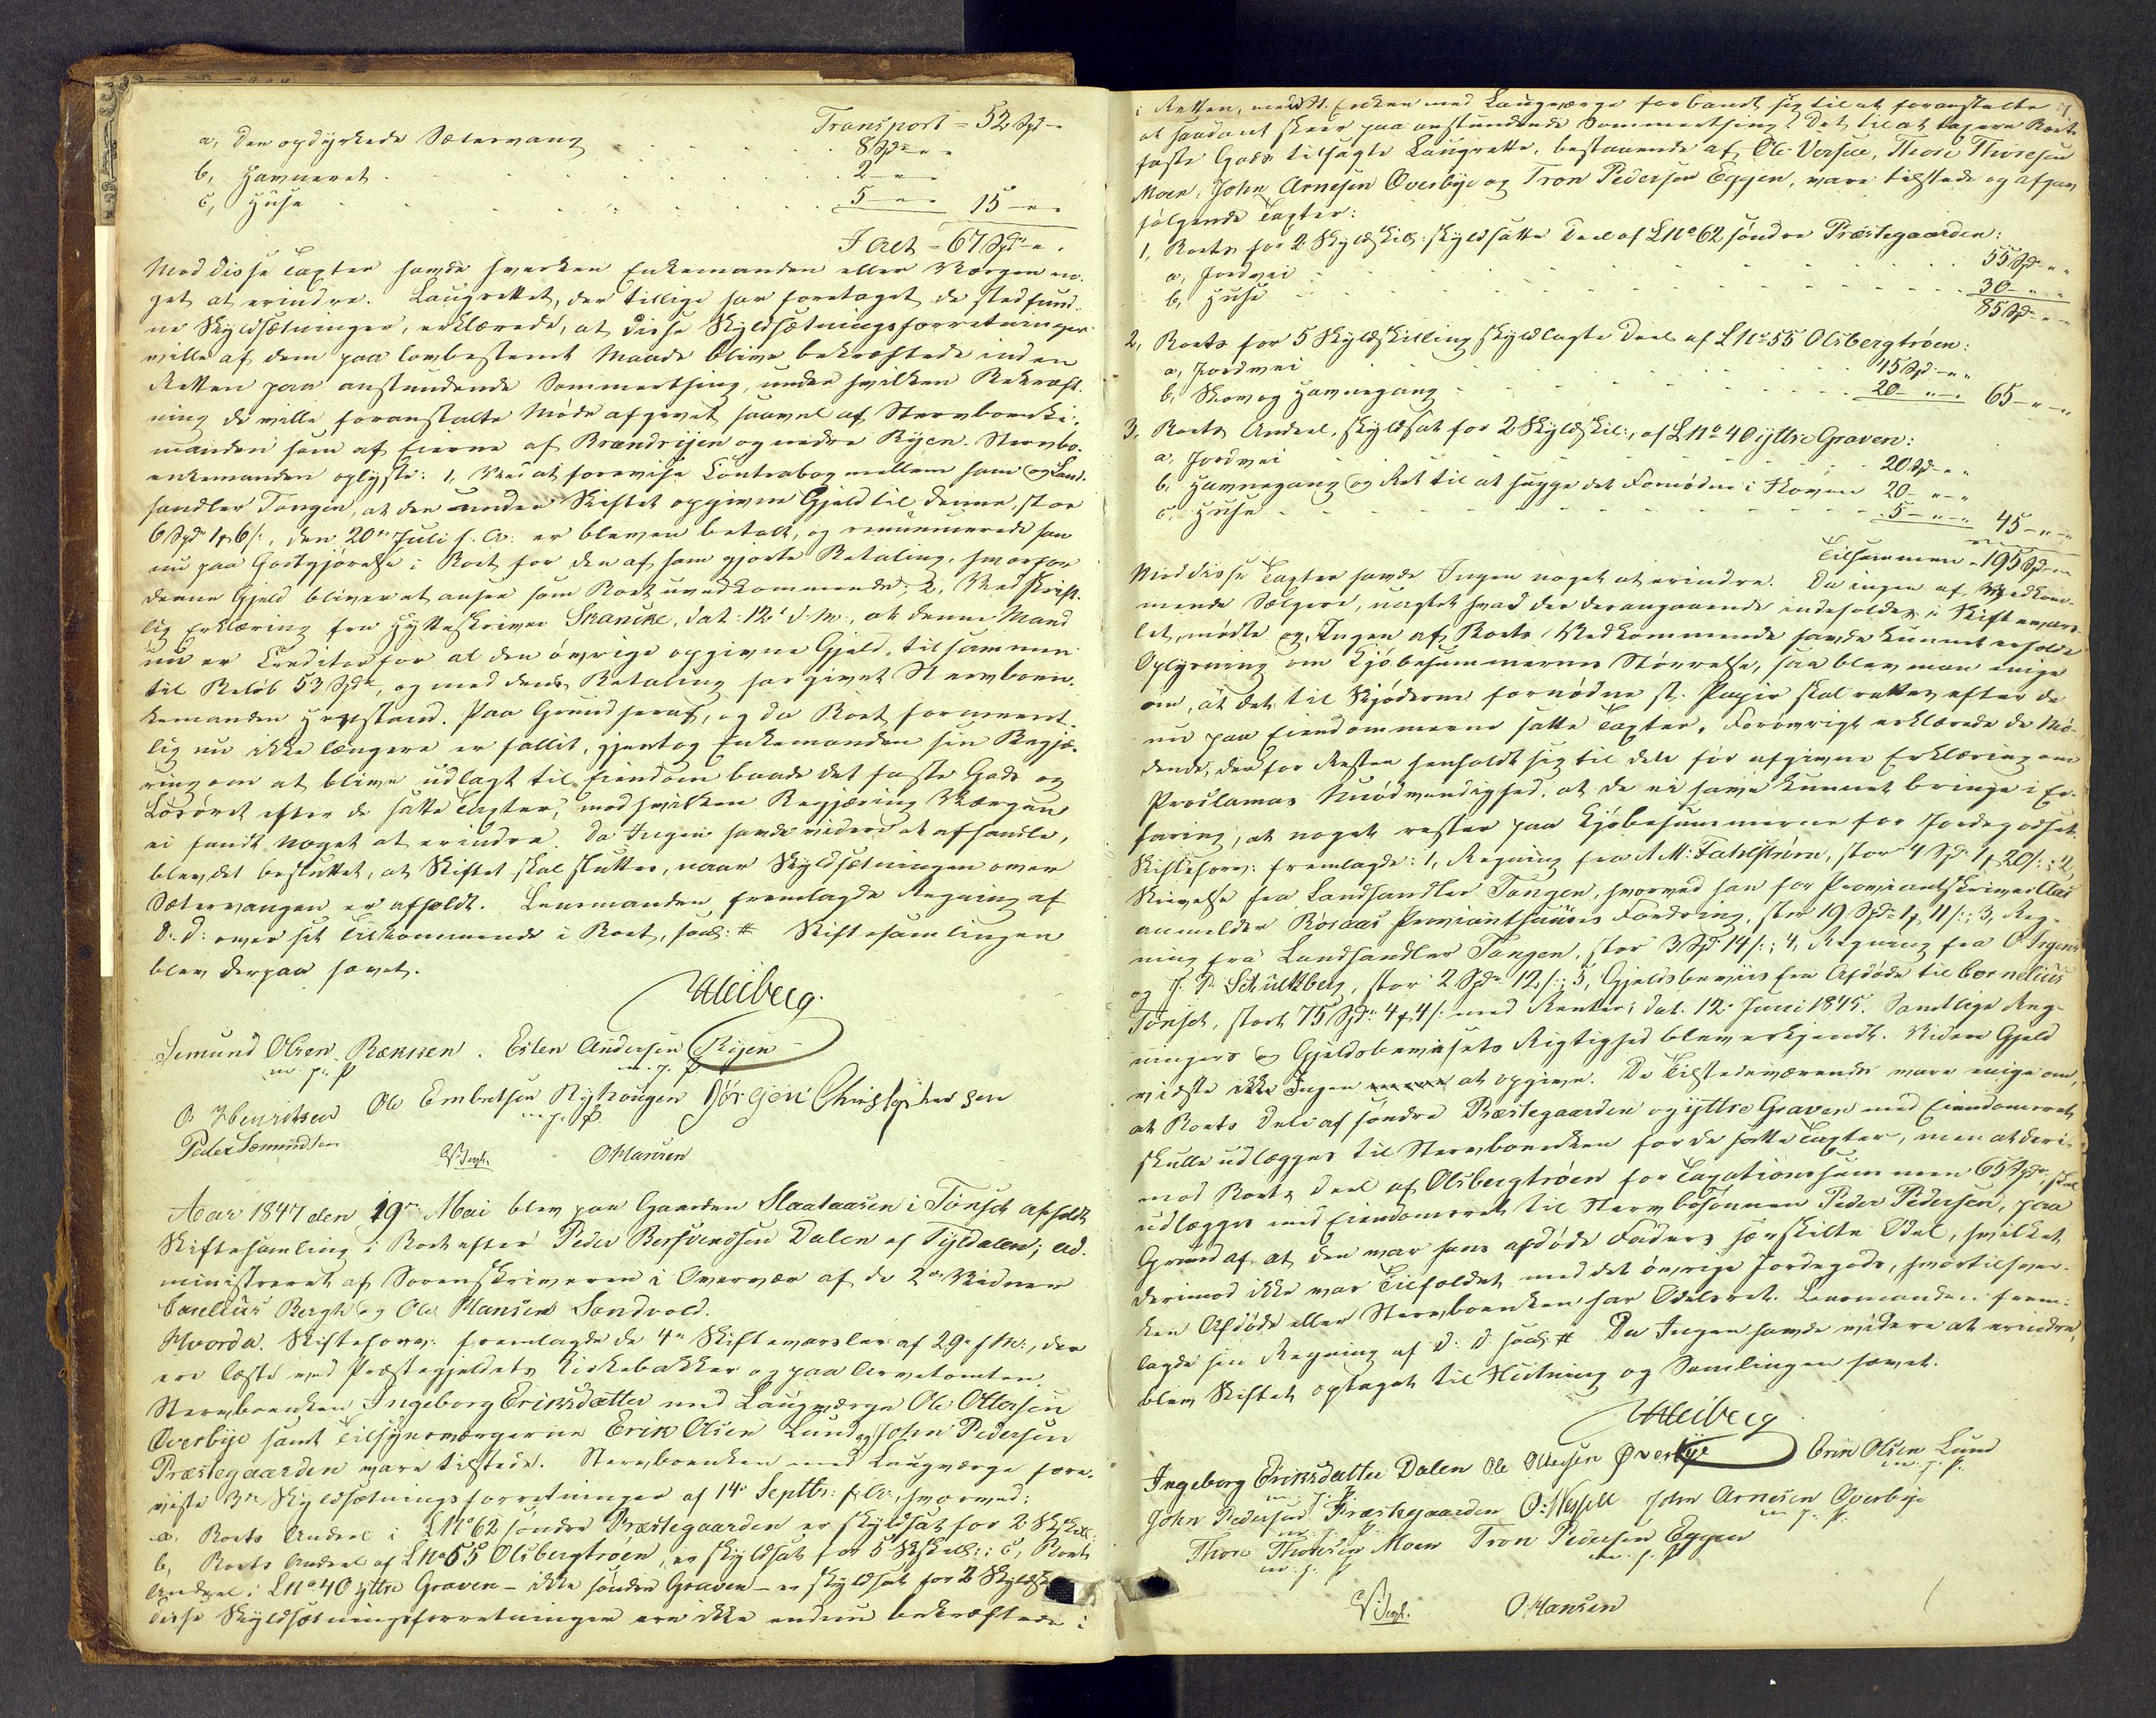 Transport = 52 Spd -
a, Den opdyrkede Sætervang . . . . . 8 Spd " "
b, Havneret . . . . . . . 2 - " -
c, Huse . . . . . . . 5 - " - 15 - " -
I Alt = 67 Spd " .
Mod disse Taxter havde hverken Enkemanden eller Værgen no-
get at erindre. Laugrettet, der tillige har foretaget de stedfund-
ne Skyldsætninger, erklærede, at disse Skyldsætningsforretninger
ville af dem paa lovbestemt Maade blive bekræftede inden
Retten paa anstundende Sommerthing, under hvilken Bekræft-
ning de ville foranstalte Møde afgivet saavel af Stervboenke-
manden som af Eierne af Brændryen og nedre Ryen. Stervbo-
enkemanden oplyste: 1, Ved at forevise Contrabog mellem ham og Land-
handler Tangen, at den under Skiftet opgivne Gjeld til denne, stor
6 Spd 1 # 6 /:, den 20de Juli f. A. er bleven betalt, og renuncerede han
nu paa Godtgjørelse i Boet for den af ham gjorte Betaling, hvorfor
denne Gjeld bliver at ansee som Boet uvedkommende; 2, Ved skrift-
lig Erklæring fra Hytteskriver Skancke, dat: 12te d. M., at denne Mand
nu er Creditor for al den øvrige opgivne Gjeld, tilsammen
til Beløb 53 Spd, og med dens Betaling har givet Stervboen-
kemanden Henstand. Paa Grund heraf, og da Boet formeent-
lig nu ikke længere er fallit, gjentog Enkemanden sin Begjæ-
ring om at blive udlagt til Eiendom baade det faste Gods og
Løsøret efter de satte Taxter, mod hvilken Begjæring Værgen
ei fandt noget at erindre. Da Ingen havde videre at afhandle,
blev det besluttet, at Skiftet skal sluttes, naar Skyldsætningen over
Sætervangen er afholdt. Lensmanden fremlagde Regning af
D. D: over sit Tilkommende i Boet, saal: # Skiftesamlingen
blev derpaa hævet.
Meiberg.
Semund Olsen Bæknen. Esten Andersen Ryen
m. p. P. m. p. P.
O Henriksen Ole Embretsen Nyhougen Jørgen Christopher sen
m. p. P.
Peder Semundsen
V. Bergh. O Hansen
Aar 1847 den 19de Mai blev paa Gaarden Slaataasen i Tønset afholdt
Skiftesamling i Boet efter Peder Bersvendsen Dalen af Tyldalen; ad-
ministreret af Sorenskriveren i Overvær af de 2de Vidner
Carelius Bergh og Ole Hansen Sandvold.
Hvorda. Skifteforv: fremlagde de 4re Skiftevarsler af 29de f. M:, der
ere læste ved Præstegjeldets Kirkebakker og paa Arvetomten.
Stervboenken Ingeborg Eriksdatter med Laugværge Ole Ottersen
Øverbye samt Tilsynsværgerne Erik Olsen Lund og John Pedersen
Præstegaarden vare tilstede. Stervboenken med Laugværge fore-
viste 3de Skyldsætningsforretninger af 14de Septbr: f. A. hvorved:
a. Boets Andeel i L No 62 søndre Præstegaarden er skyldsat for 2 Skskill:
b, Boets Andeel af L No 55 Olsbergtrøen, er skyldsat for 5 Skskill:; c, Boets
Andeel i L No 40 yttre Graven - ikke søndre Graven - er skyldsat for 2 Skyldsk
Disse Skyldsætningsforretninger ere ikke endnu bekræftede i
i Retten, med St. Enken med Laugværge forbandt sig til at foranstalte
at saadant skeer paa anstundende Sommerthing. Det til at taxere Boets
faste Gods tilsagte Laugrette, bestaaende af Ole Vessel, Thore Thoresen
Moen, John Arnesen Øverbye og Tron Pedersen Eggen, vare tilstede og afgav
følgende Taxter:
1, Boets for 2 Skyldskill: skyldsatte Deel af L No 62 søndre Præstegaarden:
a, Jordvei . . . . . . . 55 Spd " "
b, Huse . . . . . . . 30 - " "
85 Spd " -
2, Boets for 5 Skyldskilling skyldlagte Deel af L No 55 Olsbergtrøen:
a, Jordvei . . . . . . 45 Spd - " "
b, Skov og Havnegang . . . . . 20 - " - 65 - " - "
3, Boets Andeel, skyldsat for 2 Skyldskil:, af L No 40 yttre Graven:
a, Jordvei . . . . . . 20 Spd - " .
b, Havnegang og Ret til at hugge det Fornødne i Skoven 20 - " - "
c, Huse . . . . . . . 5 - " - " 45 - " - "
Tilsammen = 195 Spd - "
Mod disse Taxter havde Ingen noget at erindre. Da ingen af Vedkom-
mende Sælgere, uagtet hvad der derangaaende indeholdes i Skiftevars-
let, mødte og Ingen af Boets Vedkommende havde kunnet erholde
Oplysning om Kjøbesummernes Størrelse, saa blev man enige
om, at det til Skjøderne fornødne st. Papir skal rettes efter de
nu paa Eiendommerne satte Taxter. Forøvrigt erklærede de Mø-
dende, der for Resten henholdt sig til den før afgivne Erklæring om
Proclamas Nødvendighed, at de ei have kunnet bringe i Er-
faring, at noget rester paa Kjøbesummerne for Jordegodset.
Skifteforv: fremlagde: 1, Regning fra A M: Fahlstrøm, stor 4 Spd 1 # 20 /:; 2,
Skrivelse fra Landhandler Tangen, hvorved han for Proviantskriver Aas
anmelder Røraas Provianthuuses Fordring, stor 19 Spd 1 # 11 /:; 3, Reg-
ning fra Landhandler Tangen, stor 3 Spd 14 /:; 4, Regning fra O. Trgens
og J. P. Schultzberg, stor 2 Spd 12 /:; 5, Gjeldsbeviis fra Afdøde til Cornelius
Tønset, stort 75 Spd 4 # 4 /: med Renter, dat. 12te Juni 1845. Samtlige Reg-
ningers og Gjeldsbevisets Rigtighed blev erkjendt. Videre Gjeld
vidste ikke Ingen at opgive. De Tilstedeværende vare enige om,
at Boets Dele af søndre Præstegaarden og yttre Graven med Eiendomsret
skulle udlægges til Stervboenken for de satte Taxter, men at deri-
mod Boets Deel af Olsbergtrøen for Taxationssummen 65 Spd, skal
udlægges med Eiendomsret til Stervbosønnen Peder Pedersen, paa
Grund af at den var hans afdøde Faders særskilte Odel, hvilket
derimod ikke var Tilfældet med det øvrige Jordegods, hvortil hver-
ken Afdøde eller Stervboenken har Odelsret. Lensmanden frem-
lagde sin Regning af D: D: saal: # Da Ingen havde videre at erindre,
blev Skiftet optaget til Slutning og Samlingen hævet.
Meiberg
Ingeborg Eriksdatter Dalen Ole Ottersen Øverbye Erik Olsen Lund
m. p. P. m. p. P.
John Pedersen Præstegaarden O: Vessell John Arnesen Øverbye
m. p. P. m. p. P.
Thore Thoresen Moen Tron Pedersen Eggen
m. p. P. m. p. P.
V. Bergh. O. Hansen